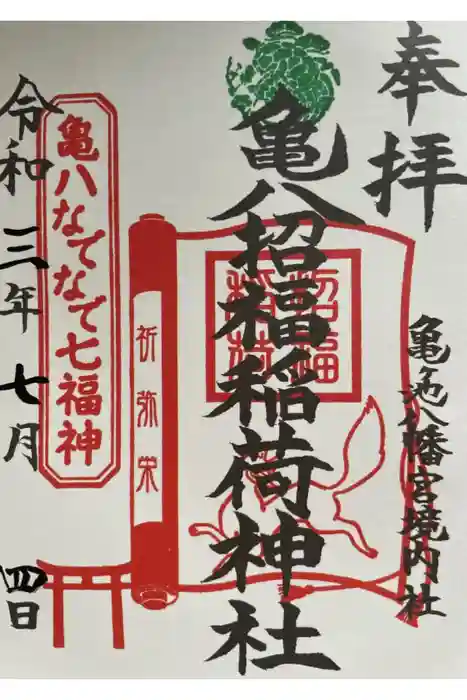 奉拝
亀ヶ池八幡宮境内社
亀八招福稲荷神社
招福
稲荷
祈弥栄
亀八なでなで七福神
令和三年七月四日